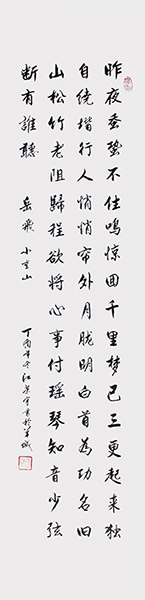 昨夜寒蛩不住鸣惊回千里梦已三更起来独
自绕堦行人悄悄帘外月胧明白首为功名旧
山松竹老阻归程欲将心事付瑶琴知音少弦
断有谁听 岳飞 小重山
丁酉年冬江